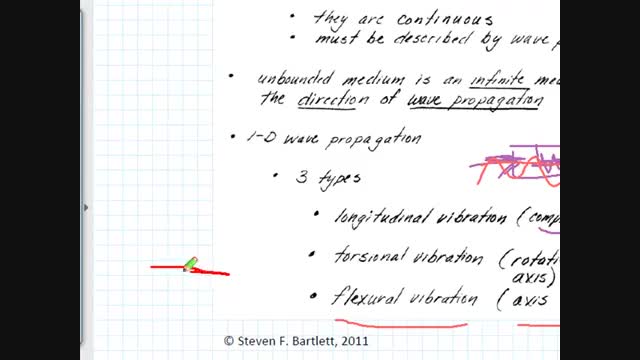 • they are continuous
• must be described by wave
• unbounded medium is an infinite
the direction of wave propagation
• 1-D wave propagation
• 3 types
• longitudinal vibration (
• torsional vibration (
axis)
• flexural vibration ( axis
© Steven F. Bartlett, 2011